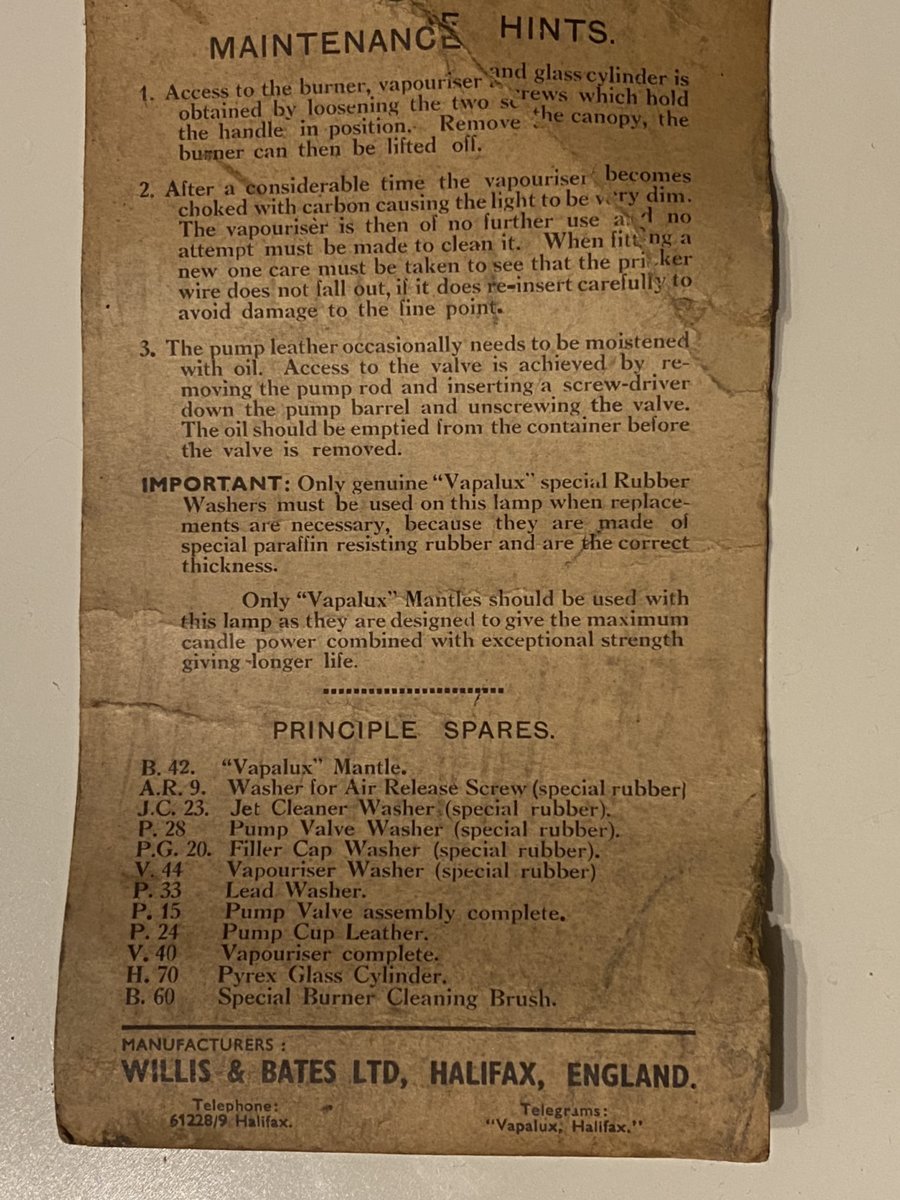 MAINTENANCE HINTS.
1. Access to the burner, vapouriser and glass cylinder is
obtained by loosening the two screws which hold
the handle in position. Remove the canopy, the
burner can then be lifted off.
2. After a considerable time the vapouriser becomes
choked with carbon causing the light to be very dim.
The vapouriser is then of no further use and no
attempt must be made to clean it. When fitting a
new one care must be taken to see that the pricker
wire does not fall out, if it does re-insert carefully to
avoid damage to the fine point.
3. The pump leather occasionally needs to be moistened
with oil. Access to the valve is achieved by re-
moving the pump rod and inserting a screw-driver
down the pump barrel and unscrewing the valve.
The oil should be emptied from the container before
the valve is removed.
IMPORTANT: Only genuine "Vapalux" special Rubber
Washers must be used on this lamp when replace-
ments are necessary, because they are made of
special paraffin resisting rubber and are the correct
thickness.
Only "Vapalux" Mantles should be used with
this lamp as they are designed to give the maximum
candle power combined with exceptional strength
giving longer life.
PRINCIPLE SPARES.
B. 42. "Vapalux" Mantle.
A.R. 9. Washer for Air Release Screw (special rubber)
J.C. 23. Jet Cleaner Washer (special rubber).
P. 28 Pump Valve Washer (special rubber).
P.G. 20. Filler Cap Washer (special rubber).
V. 44 Vapouriser Washer (special rubber)
P. 33 Lead Washer.
P. 15 Pump Valve assembly complete.
P. 24 Pump Cup Leather.
V. 40 Vapouriser complete.
H. 70 Pyrex Glass Cylinder.
B. 60 Special Burner Cleaning Brush.
MANUFACTURERS:
WILLIS & BATES LTD, HALIFAX, ENGLAND.
Telephone: Telegrams:
61228/9 Halifax. "Vapalux, Halifax."